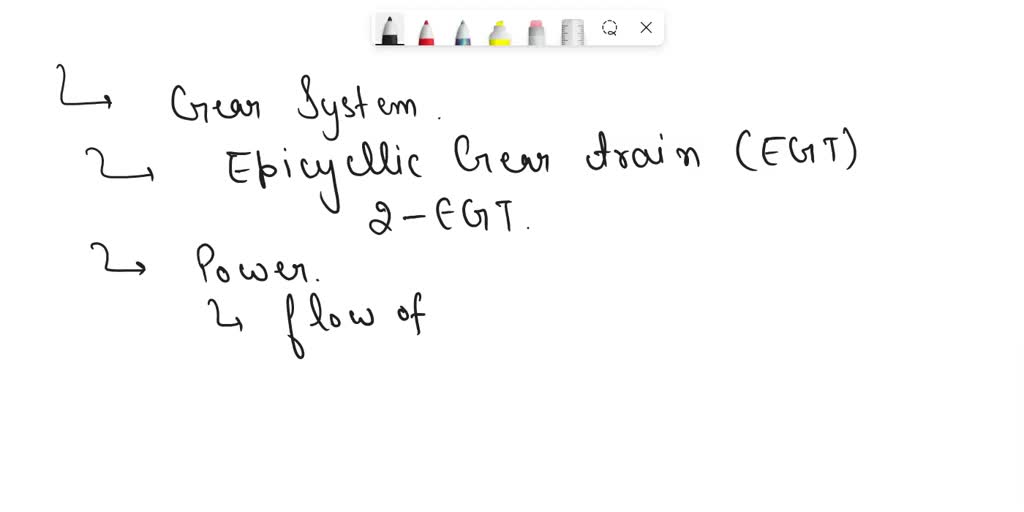 Gear System.
Epicyllic Gear train (EGT)
2-EGT.
Power.
flow of